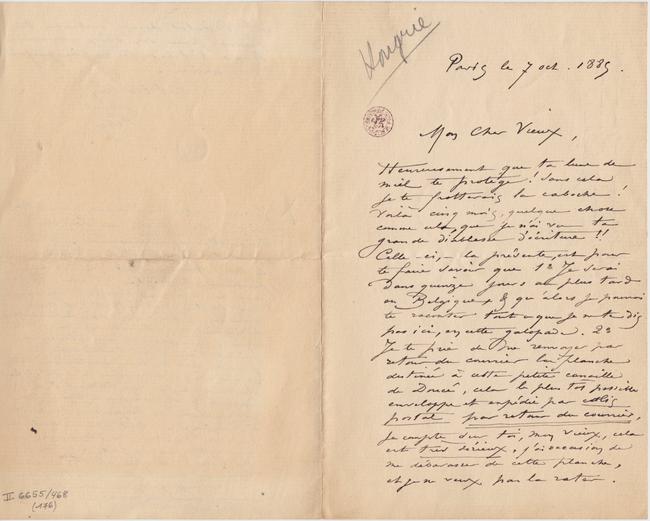 Hongrie
Paris le 7 oct. 1885.
Mon Cher Vieux,
Heureusement que ta lune de
miel te protège! Sans cela
je te frotterais la caboche!
Voilà cinq mois, quelque chose
comme cela, que je n'ai vu ta
grande diablesse d'écriture!!
Celle-ci, - la présente, est pour
te faire savoir que 1º Je serai
Dans quinze jours au plus tard
en Belgique, & qu'alors je pourrai
te raconter tout ce que je ne te dis
pas ici, en cette galopade. 2º
Je te prie de me renvoyer par
retour du courrier la planche
destinée à cette petite canaille
de Doucé, cela le plus tôt possible
enveloppé et expédié par colis
postal par retour du courrier,
je compte sur toi, mon vieux, cela
est très sérieux, j'ai occasion de
me débarasser de cette planche,
et je ne veux pas la rater.
II 6655/468
(176)